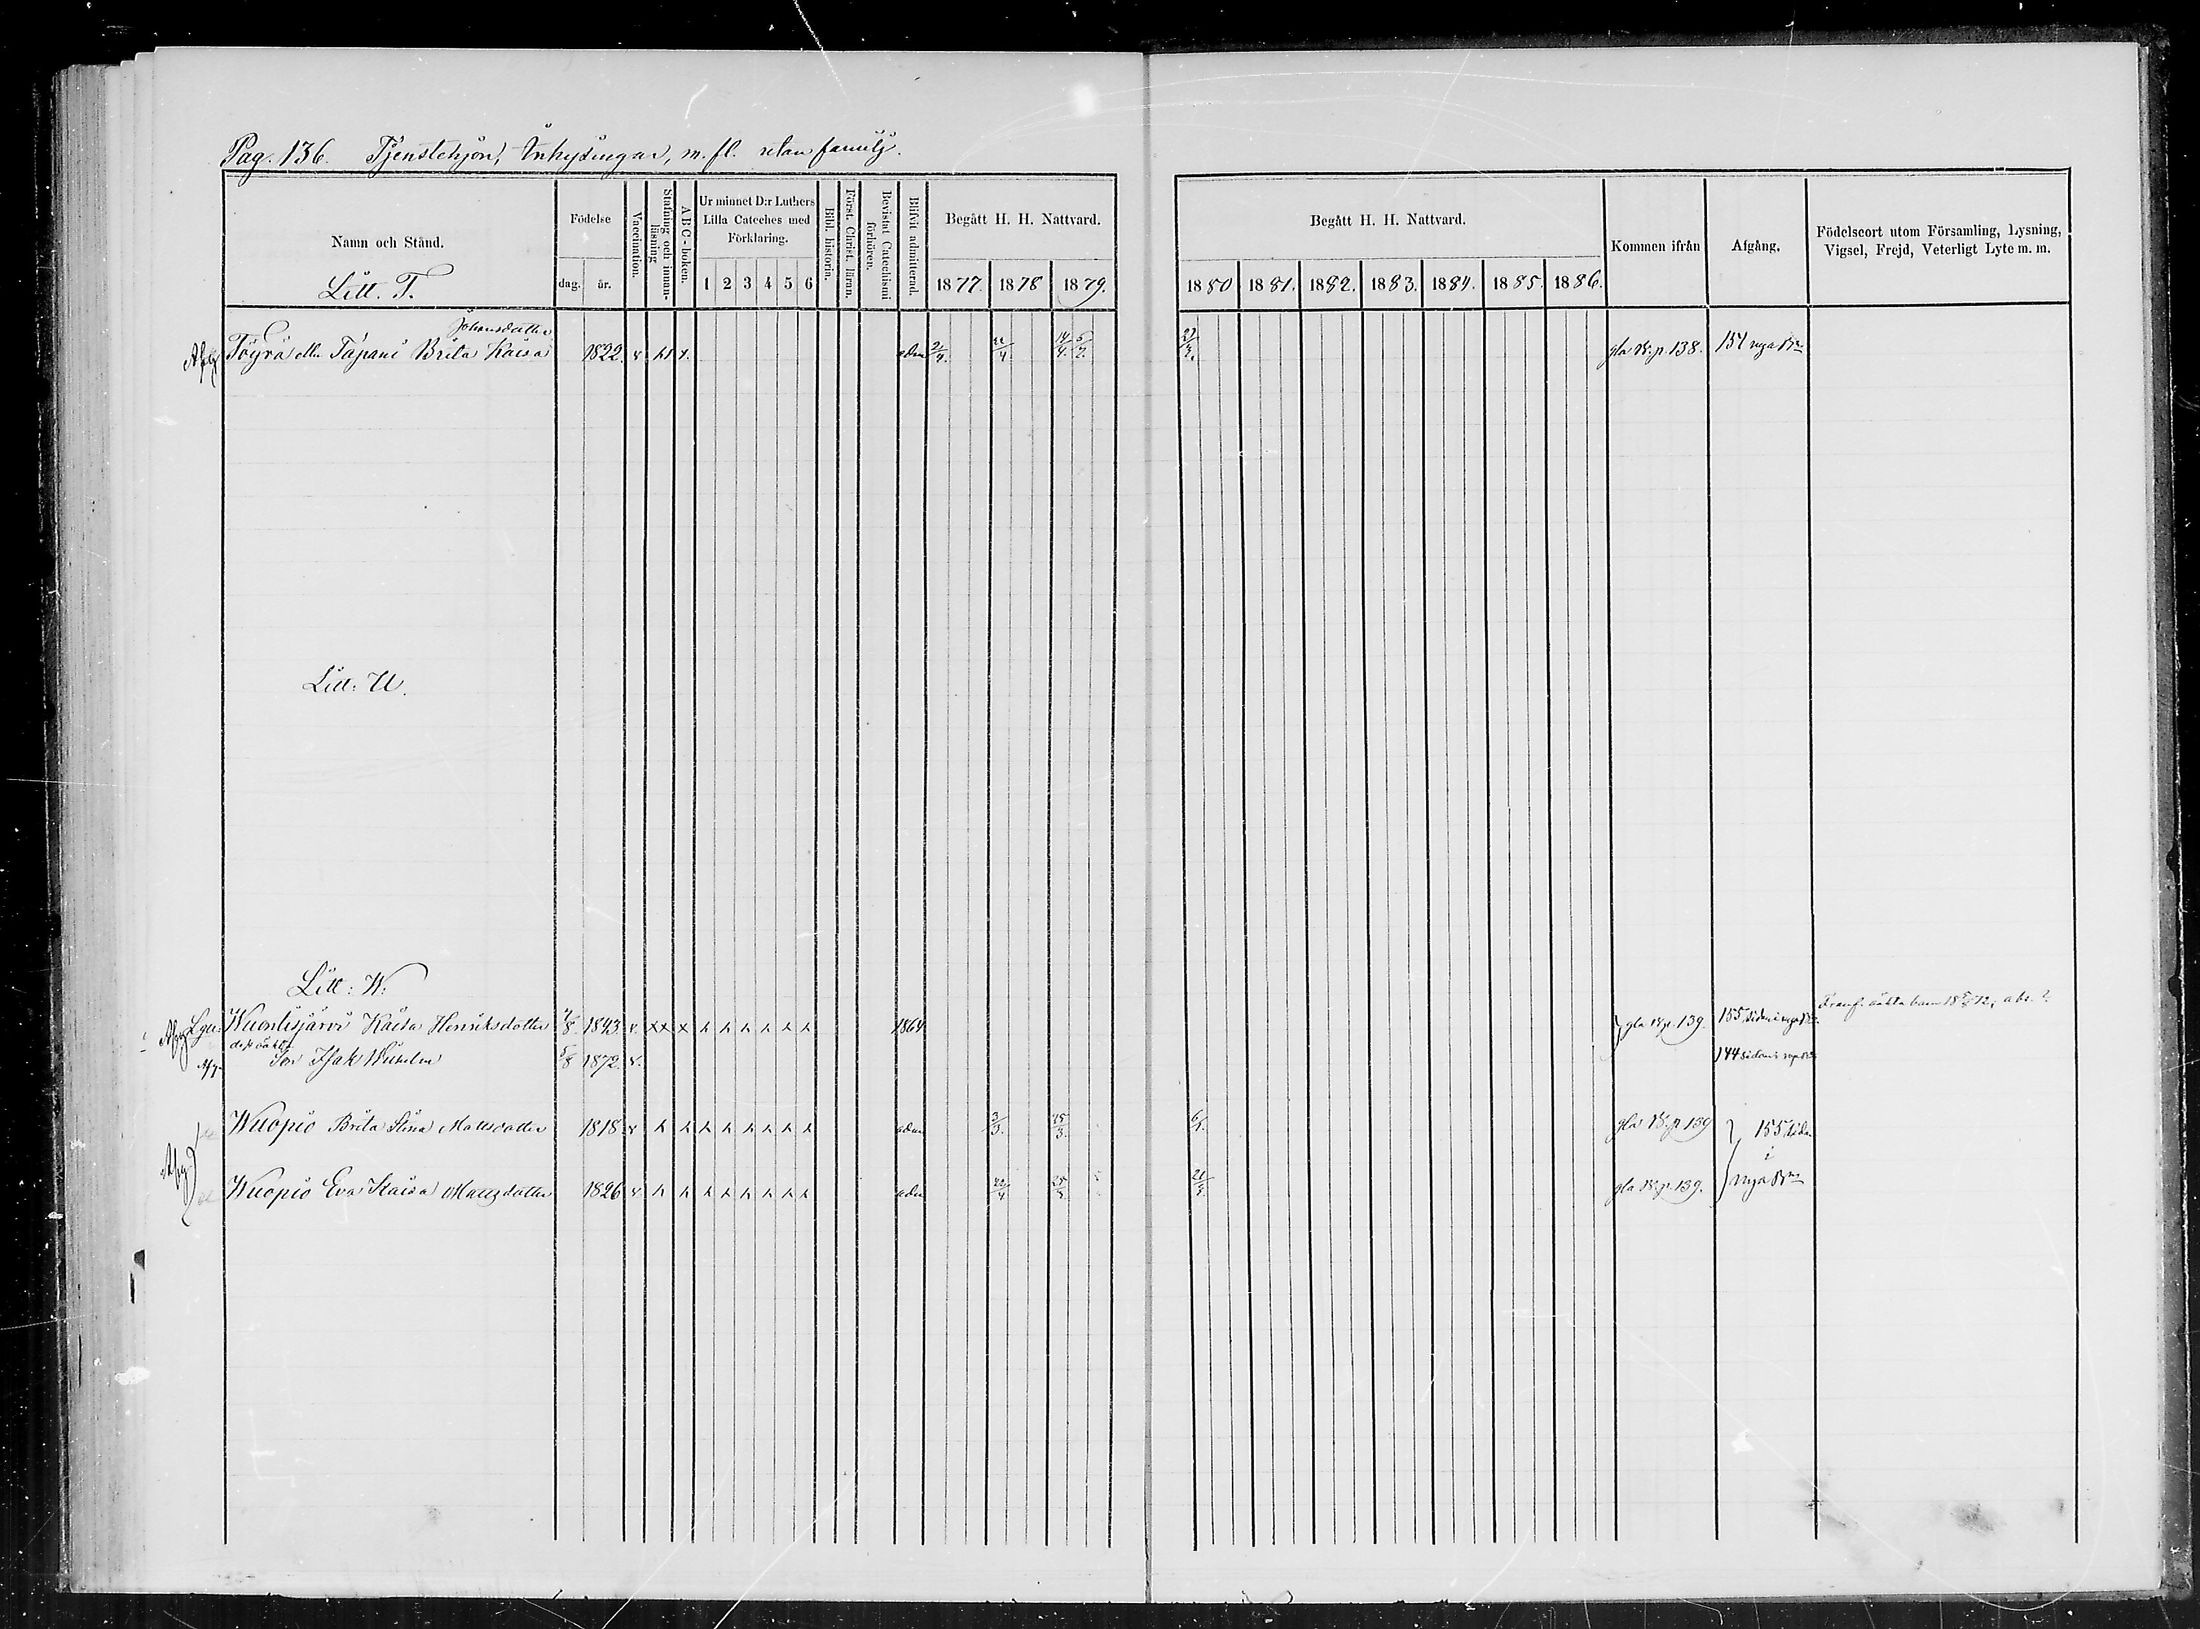 Pag. 136. Tjenstehjon, Inhysingar, m. fl. utan familj.
Namn och Stånd.
Litt. T.
Födelse
dag. år.
Vaccination.
Stafning och innanläsning
A B C-boken.
Ur minnet D:r Luthers Lilla Cateches med Förklaring.
1 2 3 4 5 6
Bibl. historia.
Först. Christ. läran.
Bevistat Catechismi förhören.
Blifvit admitterad.
Begått H. H. Nattvard.
1877. 1878 1879.
Begått H. H. Nattvard.
1880 1881. 1882. 1883. 1884. 1885. 1886.
Kommen ifrån
Afgång.
Födelseort utom Församling, Lysning, Vigsel, Frejd, Veterligt Lyte m. m.
Johansdotter
Afg Töyrä eller Tapani Brita Kaisa 1822. v. adm 22/4 14/4 gla Bk. p. 138. 151 nya Bkn
Litt: U.
Litt: W:
Afg Wuontisjärvi Kaisa Henriksdotter 1843. v. xx x 1864 gla Bk. p. 139. 155 sidan i nya Bkn
dess oäkta
Son Isak Wilhelm 5/8 1872. v. 144 sidan i nya Bkn
Wuopio Brita Stina Mattsdotter 1818. v adm 3/3. 25/3. 6/4. gla Bk. p 139 155 sidan
i
Afg Wuopio Eva Kaisa Mattsdotter 1826 v. adm 22/4 25/3 21/3. gla Bk. p. 139. nya Bkn